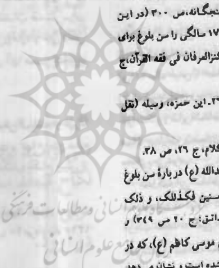 نجگانه، ص ۳۰۰ (در این
۱۷ سالگی را سن بلوغ برای
کنزالعرفان فی فقه القرآن، ج
۲۶. ابن حمزه، وسیله (نقل
کلام، ج ۲۶، ص ۳۸.
عبدالله (ع) دربارهٔ سن بلوغ
سنین فکذلک، و ذلک
دائق: ج ۲۰ ص ۳۴۹) و
موسی کاظم (ع)، که در